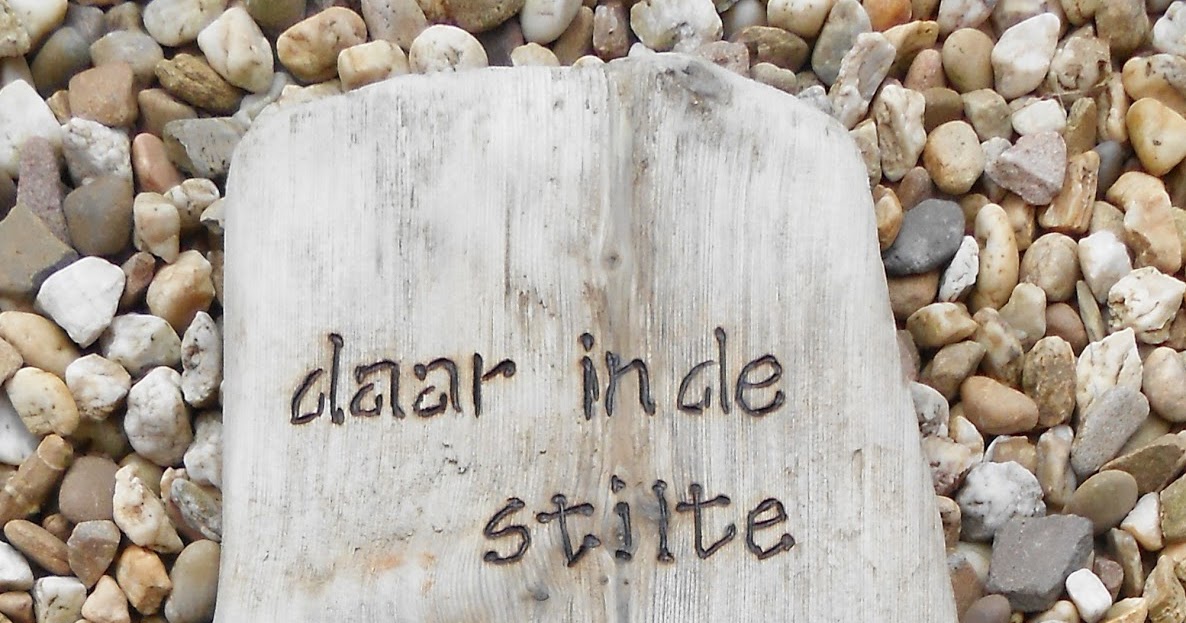 daar in de
stilte